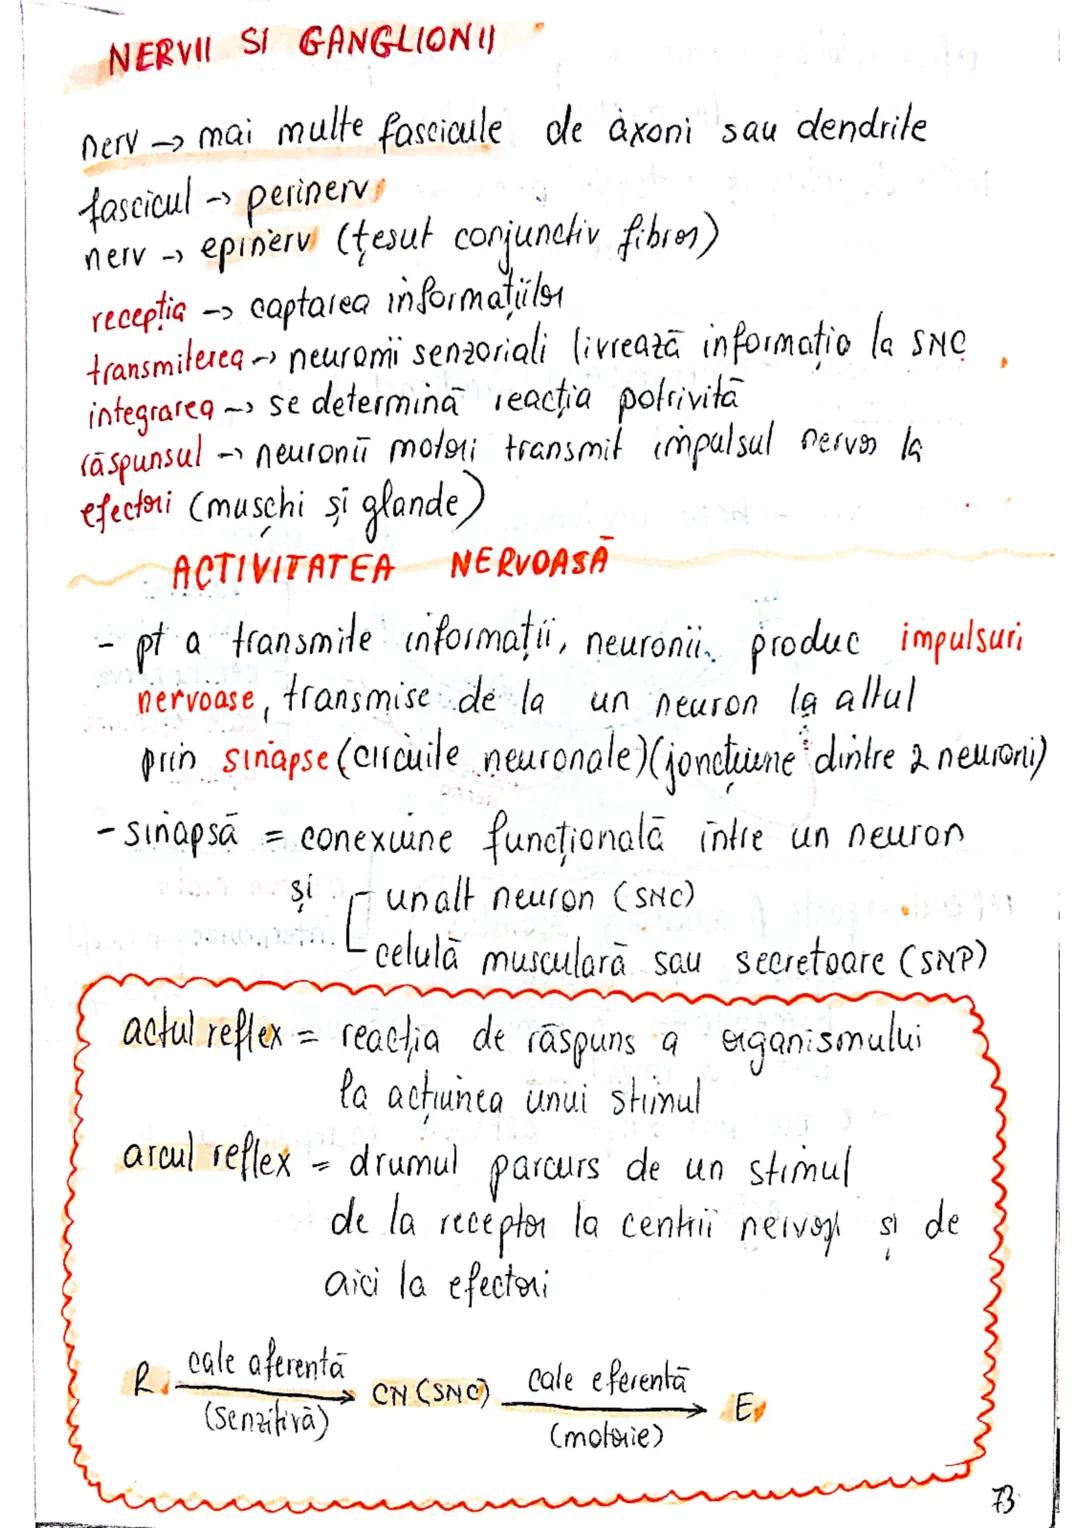 NERVII SI GANGLIONII
nerv → mai multe fascicule de axoni sau dendrite
fascicul → perinerv
nerv → epinerv (țesut conjunctiv fibros)
recepția → captarea informațiilor
transmiterea → neuronii senzoriali livrează informația la SNC
integrarea → se determină reacția potrivită
răspunsul → neuronii motori transmit impulsul nervos la
efectori (mușchi și glande)
ACTIVITATEA NERVOASĂ
- pt a transmite informații, neuronii produc impulsuri
nervoase, transmise de la un neuron la altul
prin sinapse (circuite neuronale)(joncțiune dintre 2 neuroni)
- sinapsă = conexiune funcțională între un neuron
și unalt neuron (SNC)
celulă musculară sau secretoare (SNP)
actul reflex = reacția de răspuns a organismului
la acțiunea unui stimul
arcul reflex - drumul parcurs de un stimul
de la receptor la centrii nervoși și de
aici la efectori
R cale aferentă → CN (SNC) cale eferentă → E
(senzitivă) (motorie)
73